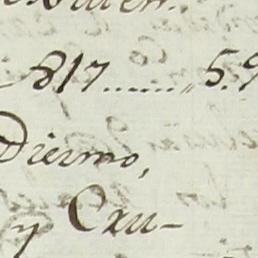 817........ 5.9
Diezmo,
y Cxu-